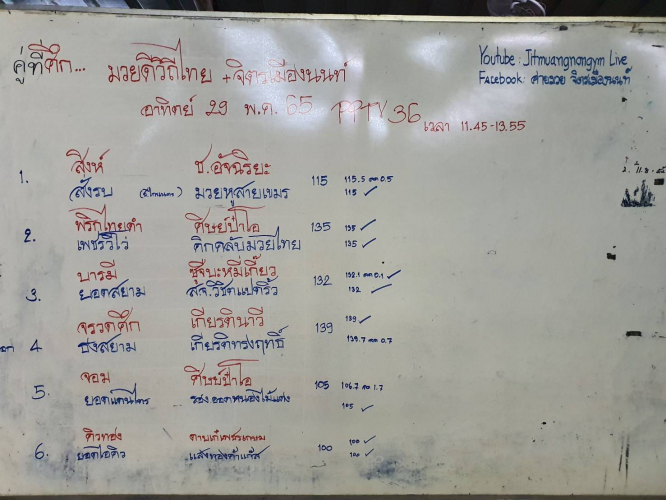 คู่ที่ศึก... มวยดีวิถีไทย + จิตรเมืองนนท์
Youtube : Jitmuangnongym Live
Facebook : ค่ายมวย จิตรเมืองนนท์
อาทิตย์ 29 พ.ค. 65 PPTV 36 เวลา 11.45-13.55
1. สิงห์ ช.อัจฉริยะ 115 115.5 ลด 0.5
สั่งรบ มวยหูสายเขมร 115 ✓
2. พริกไทยดำ ศิษย์ป๋าโอ 135 135 ✓
เพชรวิไว คิกคลับมวยไทย 135 ✓
3. บารมี ซุ้จ๊ะหมี่เกี๊ยว 132 132.1 ลด 0.1 ✓
ยอดสยาม ส.จ.วิชิตแปดริ้ว 132 ✓
4 จรวดศึก เกียรตินาวี 139 139 ✓
ชงสยาม เกียรติทรงฤทธิ์ 139.7 ลด 0.7
5. จอม ศิษย์ป๋าโอ 105 106.7 ลด 1.7
ยอดแดนไตร 105 ✓
6. คิวทอง ดาบเก๋เพชรเกษม 100 100 ✓
ยอดไอคิว แสงทองค้าแก๊ส 100 ✓